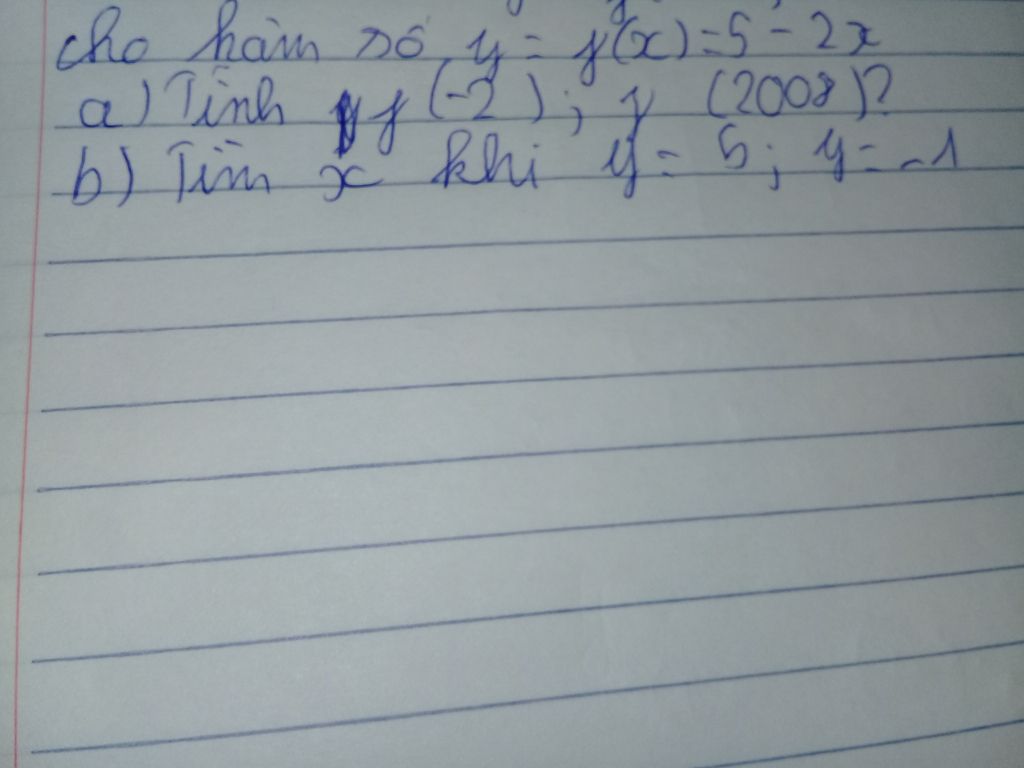 cho hàm số y = f(x) = 5 - 2x
a) Tính f(-2); f (2008)?
b) Tìm x khi y = 5; y = -1